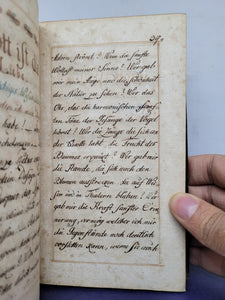 39.
Adern strömt? Wem die sanfte
Wollust meiner Sinne? Wer gab
mir mein Auge, und die Schönheit
der Natur zu sehen? Wer das
Ohr, das die harmonischen
Töne der Gesänge der Vögel
höret? Wer die Zunge, die sich an
der Frucht des
Baumes erquicket? Wer gab mir
die Hände, die sich nach den
Blumen ausstrecken, die auf Wie-
sen und in Thälern blühen? Wer
gab mir die Kraft sanfter Erin-
nerung, vermög welcher ich mir
die Gegenstände noch deutlich
vorstellen kann, wenn sie mich